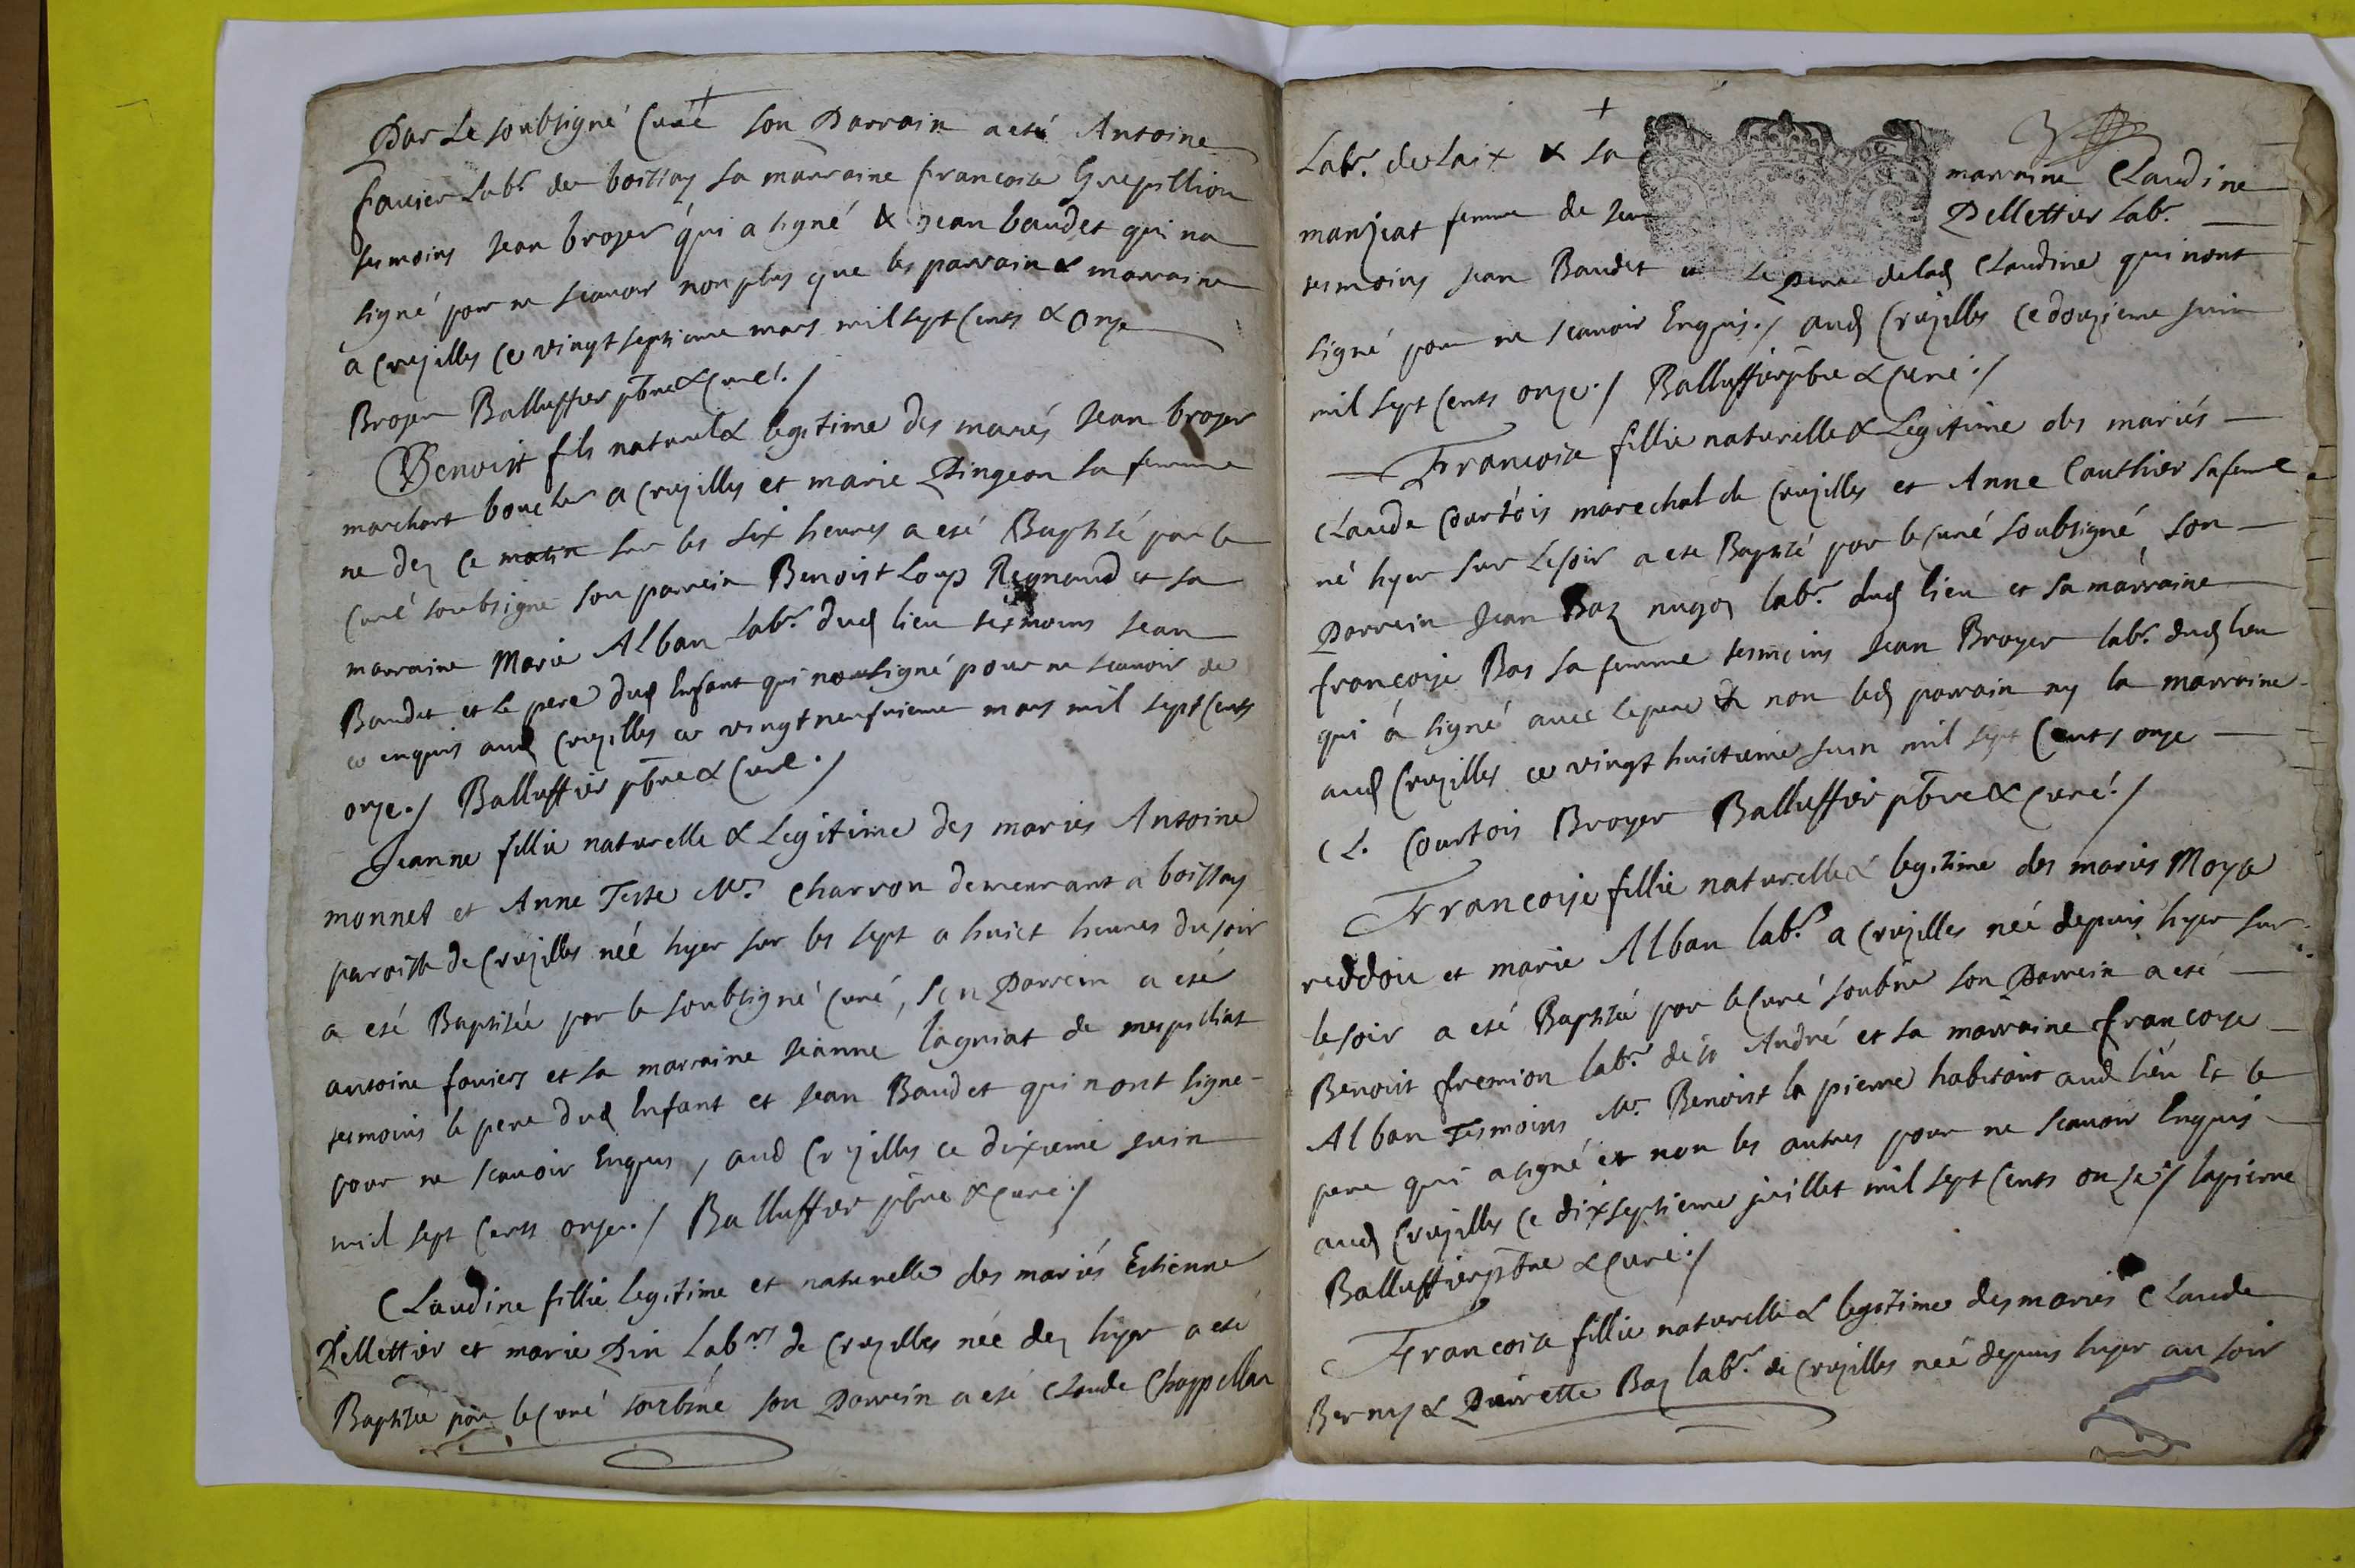 Par Le soubsigné Curé son Parrain a esté Antoine
favier Labr. de boissay sa marraine francoise Grepillion
tesmoins Jean broyer qui a signé & Jean baudet qui na
signé pour ne scavoir non plus que les parrain & marraine
a Cruzilles ce vingt septieme mars mil sept Cents & Onze
Broyer Balluffier pbre & Curé ./
Benoist fils naturel & legitime des mariés Jean broyer
marchant boucher a Cruzilles et marie Pingeon sa femme
ne dez ce matin sur les six heures a esté Baptisé par le
Curé soubsigne son parrein Benoist Loup Regnaud et sa
marraine Marie Alban Labr. dud lieu tesmoins Jean
Baudet et Le pere dud Enfant qui nont signé pour ne scavoir de
ce enquis aud Cruzilles ce vingt neufvieme mars mil sept Cents
onze ./ Balluffier pbre & Curé ./
Jeanne fillie naturelle & Legitime des mariés Antoine
monnet et Anne Teste Mr. Charron demeurant a boissay
paroisse de Cruzilles néé hyer sur les sept a huict heures du soir
a esté Baptisée par le soubsigné Curé, son Parrein a esté
antoine faviers et sa marraine Jeanne lagniat de mespilliat
tesmoins le pere dud Enfant et Jean Baudet qui nont signe
pour ne scavoir Enquis, aud Cruzilles ce dixieme Juin
mil sept Cents onze ./ Balluffier pbre & Curé ./
CLaudine fillie Legitime et naturelle des mariés Estienne
Pellettier et marie Pin Labrs de Cruzilles née dez hyer a esté
Baptisée par le Curé soubné son Parrein a esté Claude Chappellan
Labr. de Laix & sa marraine CLaudine
manziat femme de Jean Pellettier Labr.
tesmoins Jean Baudet et Le pere de lad CLaudine qui nont
signé pour ne scavoir Enquis ./ aud Cruzilles Ce douzieme Juin
mil sept Cents onze ./ Balluffier pbre & Curé ./
Francoise fillie naturelle & Legitime des mariés
CLaude Courtois marechal de Cruzilles et Anne Cauthier sa feme
né hyer sur Le soir a esté Baptisé par le Curé soubsigné son
Parrein Jean Baz labr. dud lieu et sa marraine
françoise Bas sa femme tesmoins Jean Broyer labr. dud lieu
qui a signé avec le pere & non led parrain ny la marraine
aud Cruzilles ce vingt huictieme Juin mil sept Cents onze
CL. Courtois Broyer Balluffier pbre & Curé ./
Francoise fillie naturelle & legitime des mariés Moyse
reddoie et marie Alban labr. a Cruzilles néé depuis hyer sur
le soir a esté Baptisé par le Curé soubné son Parrein a esté
Benoist fremion labr. de st André et sa marraine francoise
Alban Tesmoins Mr. Benoist la pierre habitant aud lieu Et le
pere qui a signé et non les autres pour ne scavoir Enquis
aud Cruzilles ce dixseptieme juillet mil sept Cents onze ./ lapierre
Balluffier pbre & Curé ./
Francoise fillie naturelle & legitime des mariés CLaude
Berny & Pierrette Baz labr. de Cruzilles néé depuis hyer au soir